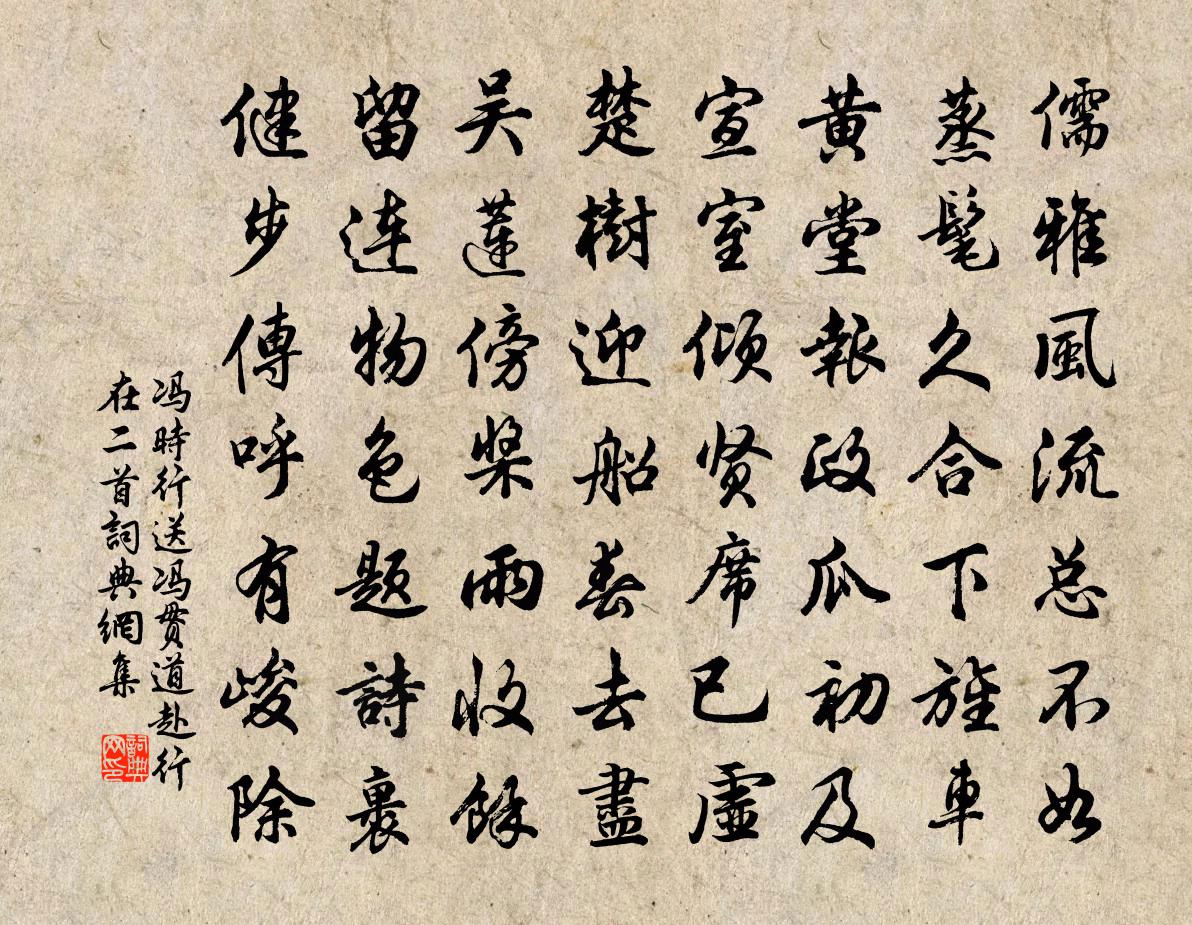 儒雅風流总不如
蒸髦久合下旌車
黄堂報政瓜初及
宣室倾贤席已虚
楚樹迎船春去盡
吴蓮傍槳雨收餘
留连物色题詩裏
健步傳呼有峻除
冯時行送冯贯道赴行
在二首詞典網集
詞典
网印